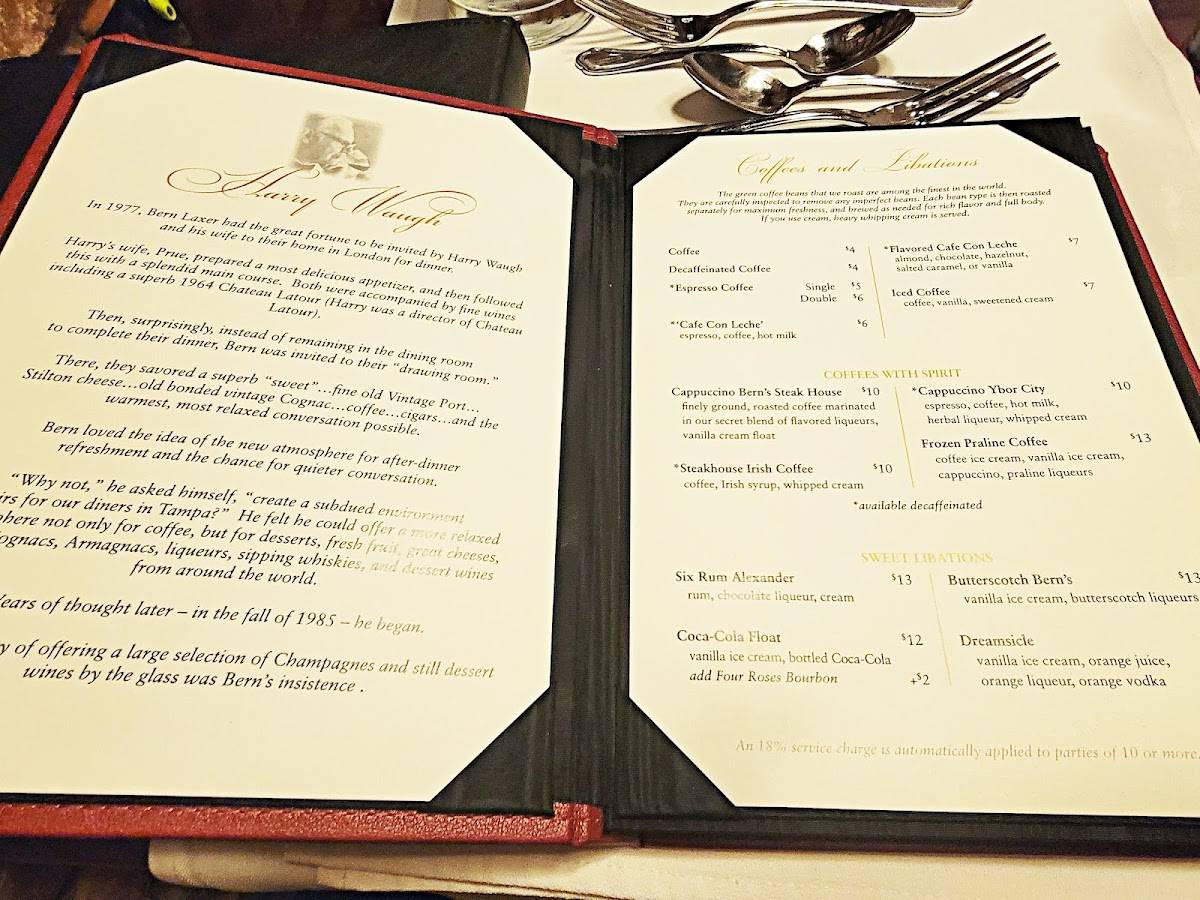 Harry Waugh
In 1977, Bern Laxer had the great fortune to be invited by Harry Waugh
and his wife to their home in London for dinner.
Harry's wife, Prue, prepared a most delicious appetizer, and then followed
this with a splendid main course. Both were accompanied by fine wines
including a superb 1964 Chateau Latour (Harry was a director of Chateau
Latour).
Then, surprisingly, instead of remaining in the dining room
to complete their dinner, Bern was invited to their “drawing room.”
There, they savored a superb “sweet”...fine old Vintage Port...
Stilton cheese...old bonded vintage Cognac...coffee...cigars...and the
warmest, most relaxed conversation possible.
Bern loved the idea of the new atmosphere for after-dinner
refreshment and the chance for quieter conversation.
“Why not,” he asked himself, “create a subdued environment
for our diners in Tampa?” He felt he could offer a more relaxed
not only for coffee, but for desserts, fresh fruit, great cheeses,
Armagnacs, liqueurs, sipping whiskies, and dessert wines
from around the world.
of thought later – in the fall of 1985 – he began.
of offering a large selection of Champagnes and still dessert
wines by the glass was Bern's insistence .
Coffees and Libations
The green coffee beans that we roast are among the finest in the world.
They are carefully inspected to remove any imperfect beans. Each bean type is then roasted
separately for maximum freshness, and brewed as needed for rich flavor and full body.
If you use cream, heavy whipping cream is served.
Coffee $4
Decaffeinated Coffee $4
*Espresso Coffee Single $5
Double $6
*'Cafe Con Leche' $6
espresso, coffee, hot milk
*Flavored Cafe Con Leche $7
almond, chocolate, hazelnut,
salted caramel, or vanilla
Iced Coffee $7
coffee, vanilla, sweetened cream
COFFEES WITH SPIRIT
Cappuccino Bern's Steak House $10
finely ground, roasted coffee marinated
in our secret blend of flavored liqueurs,
vanilla cream float
*Steakhouse Irish Coffee $10
coffee, Irish syrup, whipped cream
*Cappuccino Ybor City $10
espresso, coffee, hot milk,
herbal liqueur, whipped cream
Frozen Praline Coffee $13
coffee ice cream, vanilla ice cream,
cappuccino, praline liqueurs
*available decaffeinated
SWEET LIBATIONS
Six Rum Alexander $13
rum, chocolate liqueur, cream
Coca-Cola Float $12
vanilla ice cream, bottled Coca-Cola
add Four Roses Bourbon +$2
Butterscotch Bern's $13
vanilla ice cream, butterscotch liqueurs
Dreamsicle
vanilla ice cream, orange juice,
orange liqueur, orange vodka
An 18% service charge is automatically applied to parties of 10 or more.